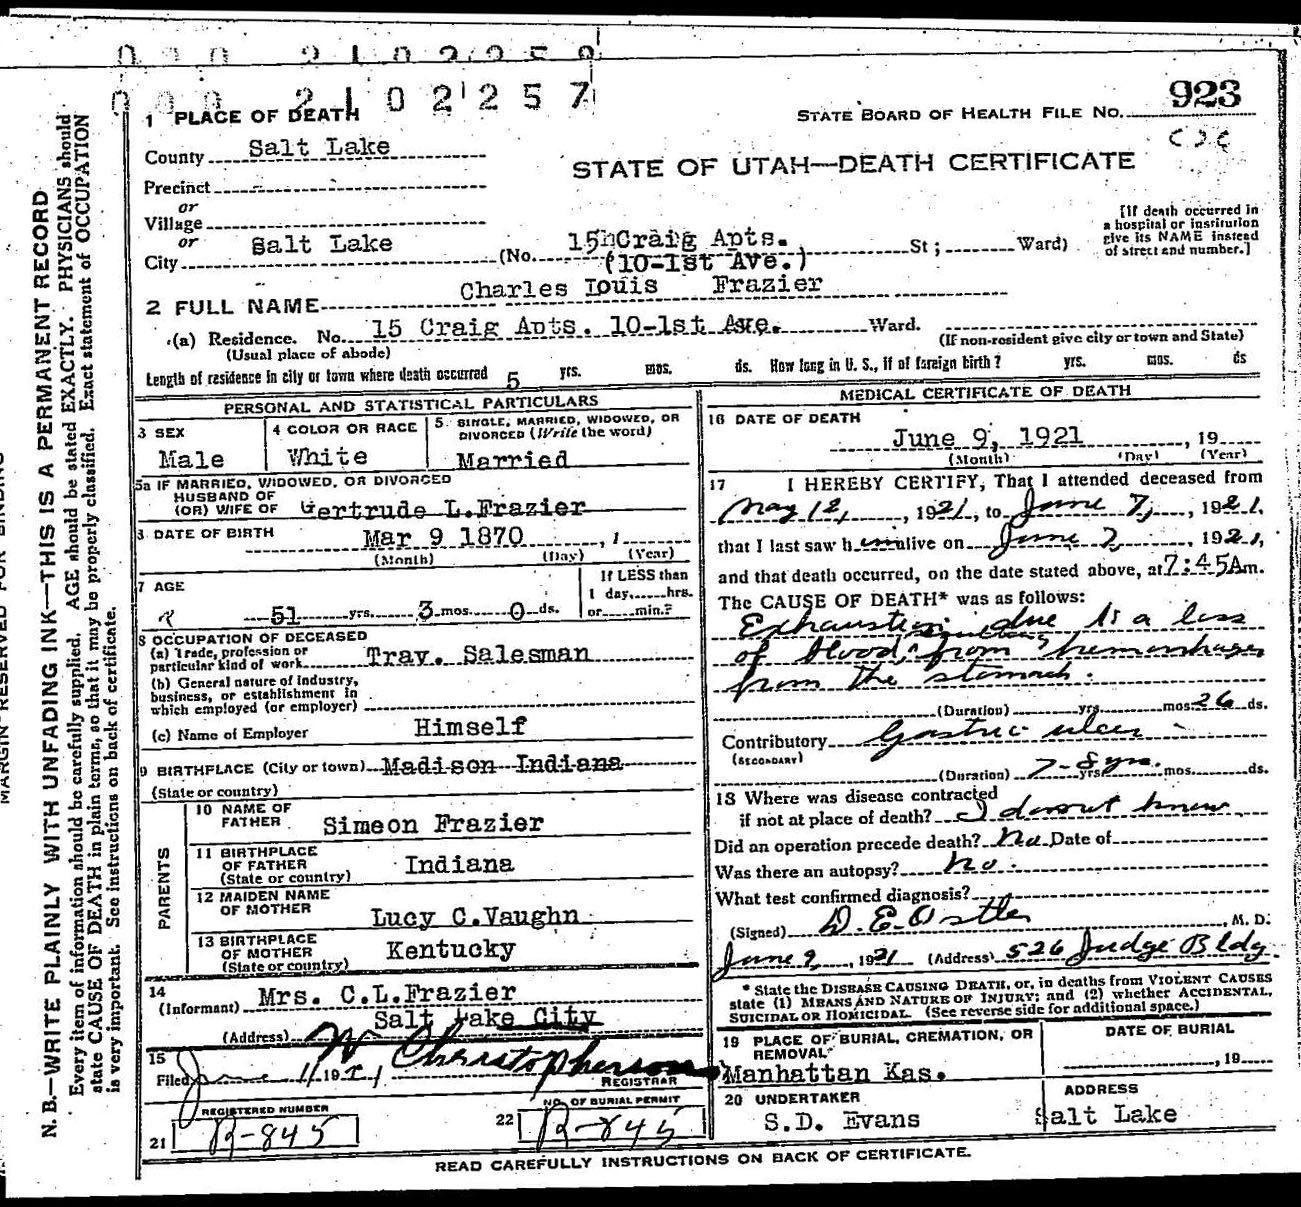 0 0 0 2 1 0 2 2 5 7
923
1 PLACE OF DEATH
STATE BOARD OF HEALTH FILE No.
County Salt Lake
STATE OF UTAH—DEATH CERTIFICATE
Precinct -
or
Village
or
City Salt Lake (No. 15 Craig Apts. St; Ward)
(10-1st Ave.)
[If death occurred in
a hospital or institution
give its NAME instead
of street and number.]
2 FULL NAME Charles Louis Frazier
(a) Residence. No. 15 Craig Apts. 10-1st Ave. Ward.
(Usual place of abode)
(If non-resident give city or town and State)
Length of residence in city or town where death occurred 5 yrs. mos. ds. How long in U. S., if of foreign birth? yrs. mos. ds
PERSONAL AND STATISTICAL PARTICULARS
3 SEX
Male
4 COLOR OR RACE
White
5 SINGLE, MARRIED, WIDOWED, OR
DIVORCED (Write the word)
Married
5a IF MARRIED, WIDOWED, OR DIVORCED
HUSBAND OF
(OR) WIFE OF Gertrude L.Frazier
3 DATE OF BIRTH Mar 9 1870 , 1
(Month) (Day) (Year)
7 AGE
51 yrs. 3 mos. 0 ds.
If LESS than
1 day, hrs.
or min.?
8 OCCUPATION OF DECEASED
(a) Trade, profession or
particular kind of work Trav. Salesman
(b) General nature of Industry,
business, or establishment in
which employed (or employer)
(c) Name of Employer Himself
9 BIRTHPLACE (City or town) Madison Indiana
(State or country)
PARENTS
10 NAME OF
FATHER Simeon Frazier
11 BIRTHPLACE
OF FATHER Indiana
(State or country)
12 MAIDEN NAME
OF MOTHER Lucy C.Vaughn
13 BIRTHPLACE
OF MOTHER Kentucky
(State or country)
14
(Informant) Mrs. C.L.Frazier
(Address) Salt Lake City
15
Filed June 11 1921 W Christopherson
REGISTRAR
REGISTERED NUMBER
21 R-845
NO. OF BURIAL PERMIT
22 R-845
MEDICAL CERTIFICATE OF DEATH
16 DATE OF DEATH
June 9, 1921 , 19
(Month) (Day) (Year)
17 I HEREBY CERTIFY, That I attended deceased from
May 12, , 1921, to June 7, , 1921,
that I last saw him alive on June 7 , 1921,
and that death occurred, on the date stated above, at 7:45Am.
The CAUSE OF DEATH* was as follows:
Exhaustion due to a loss
of blood, resulting from hemorrhages
from the stomach.
(Duration) yrs. mos 26 ds.
Contributory Gastric ulcer
(SECONDARY)
(Duration) 7-8 yrs. yrs. mos. ds.
18 Where was disease contracted
if not at place of death? I do not know
Did an operation precede death? No Date of
Was there an autopsy? No.
What test confirmed diagnosis?
(Signed) D. E. Ostler , M. D.
June 9 , 1921 (Address) 526 Judge Bldg.
* State the DISEASE CAUSING DEATH, or, in deaths from VIOLENT CAUSES
state (1) MEANS AND NATURE OF INJURY; and (2) whether ACCIDENTAL,
SUICIDAL OR HOMICIDAL. (See reverse side for additional space.)
19 PLACE OF BURIAL, CREMATION, OR
REMOVAL
Manhattan Kas.
DATE OF BURIAL
, 19
20 UNDERTAKER
S.D. Evans
ADDRESS
Salt Lake
READ CAREFULLY INSTRUCTIONS ON BACK OF CERTIFICATE.
MARGIN RESERVED FOR BINDING
N. B.—WRITE PLAINLY WITH UNFADING INK—THIS IS A PERMANENT RECORD
Every item of information should be carefully supplied. AGE should be stated EXACTLY. PHYSICIANS should
state CAUSE OF DEATH in plain terms, so that it may be properly classified. Exact statement of OCCUPATION
is very important. See instructions on back of certificate.